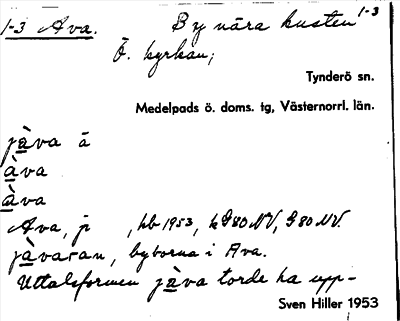 1-3 Åva. By nära kusten 1-3
Ö. kyrkan;
Tynderö sn.
Medelpads ö. doms. tg, Västernorrl. län.
jàva å
àva
àva
Ava, j , hb 1953, k G80 NV, G 80 NV.
jàvaran, byborna i Ava.
Uttalsformen jàva torde ha upp-
Sven Hiller 1953